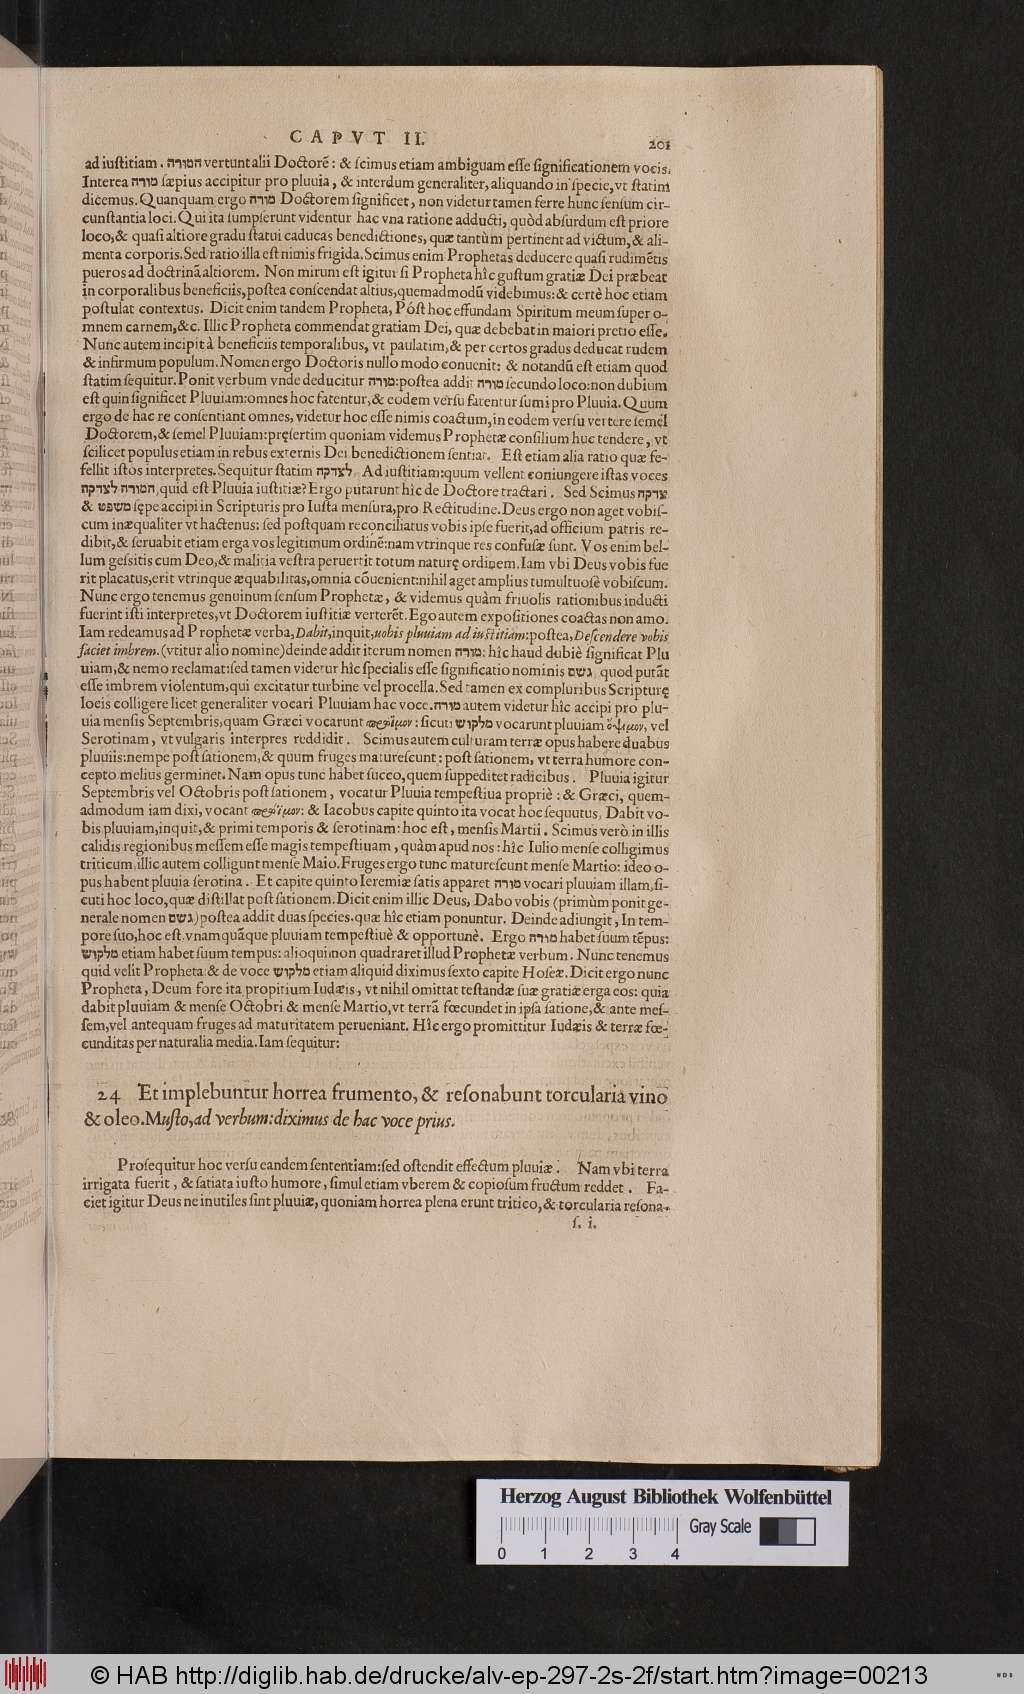 CAPVT II.
201
ad iuſtitiam. המורה vertunt alii Doctorẽ: & ſcimus etiam ambiguam eſſe ſignificationem vocis.
Interea מורה ſæpius accipitur pro pluuia, & interdum generaliter, aliquando in ſpecie, vt ſtatim
dicemus. Quanquam ergo מורה Doctorem ſignificet, non videtur tamen ferre hunc ſenſum cir-
cunſtantia loci. Qui ita ſumpſerunt videntur hac vna ratione adducti, quòd abſurdum eſt priore
loco, & quaſi altiore gradu ſtatui caducas benedictiones, quæ tantùm pertinent ad victum, & ali-
menta corporis. Sed ratio illa eſt nimis frigida. Scimus enim Prophetas deducere quaſi rudimẽtis
pueros ad doctrinã altiorem. Non mirum eſt igitur ſi Propheta hîc guſtum gratiæ Dei præbeat
in corporalibus beneficiis, poſtea conſcendat altius, quemadmodũ videbimus: & certè hoc etiam
poſtulat contextus. Dicit enim tandem Propheta, Póſt hoc effundam Spiritum meum ſuper o-
mnem carnem, &c. Illic Propheta commendat gratiam Dei, quæ debebat in maiori pretio eſſe.
Nunc autem incipit à beneficiis temporalibus, vt paulatim, & per certos gradus deducat rudem
& infirmum populum. Nomen ergo Doctoris nullo modo conuenit: & notandũ eſt etiam quod
ſtatim ſequitur. Ponit verbum vnde deducitur מורה: poſtea addit מורה ſecundo loco: non dubium
eſt quin ſignificet Pluuiam: omnes hoc fatentur, & eodem verſu fatentur ſumi pro Pluuia. Quum
ergo de hac re conſentiant omnes, videtur hoc eſſe nimis coactum, in eodem verſu vertere ſemel
Doctorem, & ſemel Pluuiam: pręſertim quoniam videmus Prophetæ conſilium huc tendere, vt
ſcilicet populus etiam in rebus externis Dei benedictionem ſentiat. Eſt etiam alia ratio quæ fe-
fellit iſtos interpretes. Sequitur ſtatim לצדקה Ad iuſtitiam: quum vellent coniungere iſtas voces
המורה לצדקה, quid eſt Pluuia iuſtitiæ? Ergo putarunt hîc de Doctore tractari. Sed Scimus צדקה
& משפט ſępe accipi in Scripturis pro Iuſta menſura, pro Rectitudine. Deus ergo non aget vobiſ-
cum inæqualiter vt hactenus: ſed poſtquam reconciliatus vobis ipſe fuerit, ad officium patris re-
dibit, & ſeruabit etiam erga vos legitimum ordinẽ: nam vtrinque res confuſæ ſunt. Vos enim bel-
lum geſsitis cum Deo, & malitia veſtra peruertit totum naturę ordinem. Iam vbi Deus vobis fue
rit placatus, erit vtrinque æquabilitas, omnia cõuenient: nihil aget amplius tumultuoſè vobiſcum.
Nunc ergo tenemus genuinum ſenſum Prophetæ, & videmus quàm friuolis rationibus inducti
fuerint iſti interpretes, vt Doctorem iuſtitiæ verterẽt. Ego autem expoſitiones coactas non amo.
Iam redeamus ad Prophetæ verba, Dabit, inquit, uobis pluuiam ad iuſtitiam: poſtea, Deſcendere vobis
faciet imbrem. (vtitur alio nomine) deinde addit iterum nomen מורה: hîc haud dubiè ſignificat Plu
uiam, & nemo reclamat: ſed tamen videtur hîc ſpecialis eſſe ſignificatio nominis גשם quod putãt
eſſe imbrem violentum, qui excitatur turbine vel procella. Sed tamen ex compluribus Scripturę
locis colligere licet generaliter vocari Pluuiam hac voce. מורה autem videtur hîc accipi pro plu-
uia menſis Septembris, quam Græci vocarunt πρώϊμον: ſicuti מלקוש vocarunt pluuiam ὄψιμον, vel
Serotinam, vt vulgaris interpres reddidit. Scimus autem culturam terræ opus habere duabus
pluuiis: nempe poſt ſationem, & quum fruges matureſcunt: poſt ſationem, vt terra humore con-
cepto melius germinet. Nam opus tunc habet ſucco, quem ſuppeditet radicibus. Pluuia igitur
Septembris vel Octobris poſt ſationem, vocatur Pluuia tempeſtiua propriè: & Græci, quem-
admodum iam dixi, vocant πρώϊμον: & Iacobus capite quinto ita vocat hoc ſequutus, Dabit vo-
bis pluuiam, inquit, & primi temporis & ſerotinam: hoc eſt, menſis Martii. Scimus verò in illis
calidis regionibus meſſem eſſe magis tempeſtiuam, quàm apud nos: hîc Iulio menſe colligimus
triticum, illic autem colligunt menſe Maio. Fruges ergo tunc matureſcunt menſe Martio: ideo o-
pus habent pluuia ſerotina. Et capite quinto Ieremiæ ſatis apparet מורה vocari pluuiam illam, ſi-
cuti hoc loco, quæ diſtillat poſt ſationem. Dicit enim illic Deus, Dabo vobis (primùm ponit ge-
nerale nomen גשם) poſtea addit duas ſpecies, quæ hîc etiam ponuntur. Deinde adiungit, In tem-
pore ſuo, hoc eſt, vnamquãque pluuiam tempeſtiuè & opportunè. Ergo מורה habet ſuum tẽpus:
מלקוש etiam habet ſuum tempus: alioqui non quadraret illud Prophetæ verbum. Nunc tenemus
quid velit Propheta: & de voce מלקוש etiam aliquid diximus ſexto capite Hoſeæ. Dicit ergo nunc
Propheta, Deum fore ita propitium Iudæis, vt nihil omittat teſtandæ ſuæ gratiæ erga eos: quia
dabit pluuiam & menſe Octobri & menſe Martio, vt terrã fœcundet in ipſa ſatione, & ante meſ-
ſem, vel antequam fruges ad maturitatem perueniant. Hîc ergo promittitur Iudæis & terræ fœ-
cunditas per naturalia media. Iam ſequitur:
24 Et implebuntur horrea frumento, & reſonabunt torcularia vino
& oleo. Muſto, ad verbum: diximus de hac voce prius.
Proſequitur hoc verſu eandem ſententiam: ſed oſtendit effectum pluuiæ. Nam vbi terra
irrigata fuerit, & ſatiata iuſto humore, ſimul etiam vberem & copioſum fructum reddet. Fa-
ciet igitur Deus ne inutiles ſint pluuiæ, quoniam horrea plena erunt tritico, & torcularia reſona-
ſ. i.
Herzog August Bibliothek Wolfenbüttel
Gray Scale
0 1 2 3 4
© HAB http://diglib.hab.de/drucke/alv-ep-297-2s-2f/start.htm?image=00213